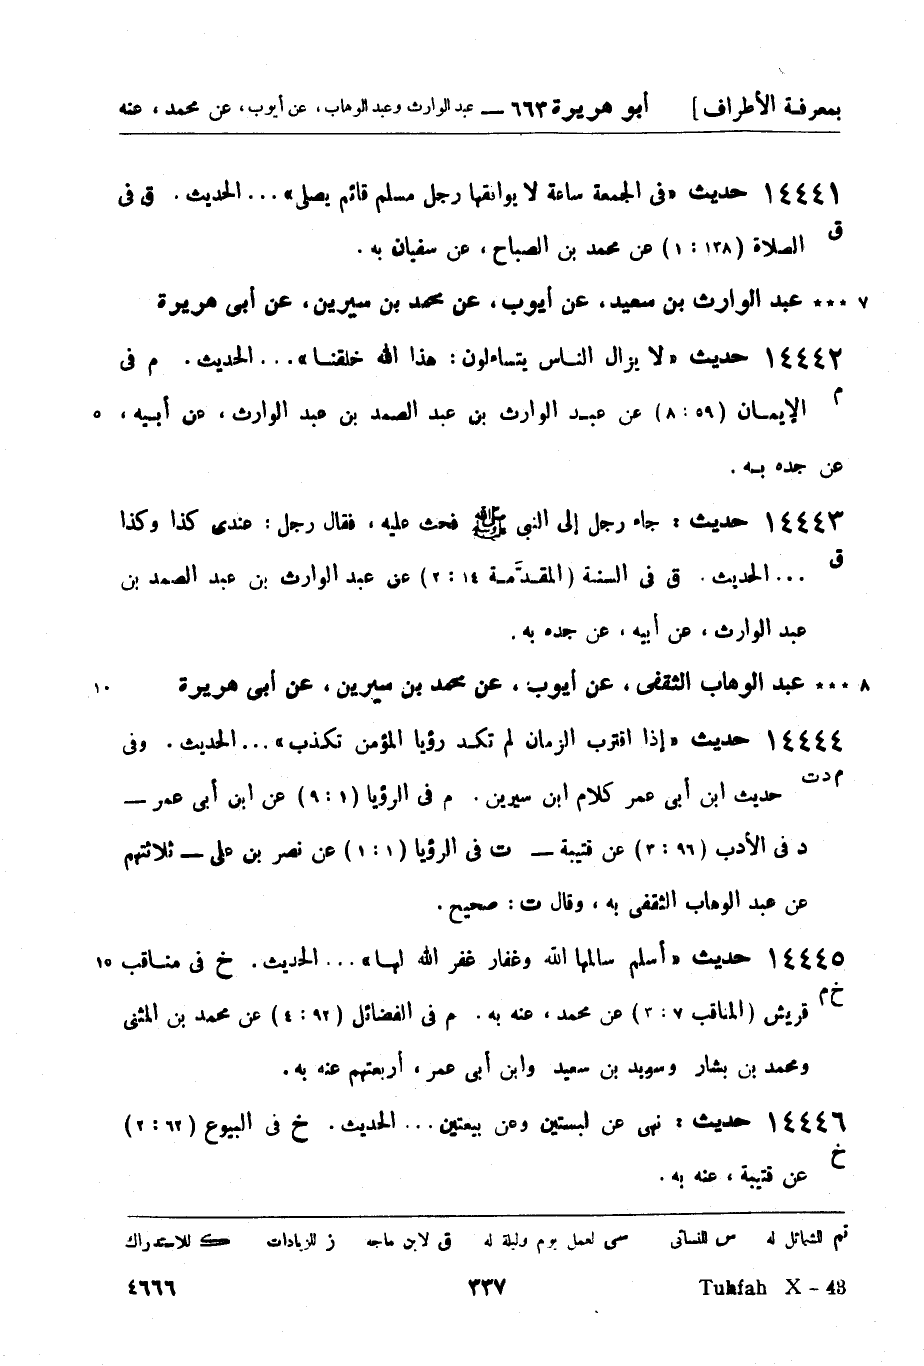 بمعرفة الأطراف] أبو هريرة ٦٦٣ — عبد الوارث وعبد الوهاب، عن أيوب، عن محمد، عنه
١٤٤٤١ حديث «فى الجمعة ساعة لا يوافقها رجل مسلم قائم يصلى» ... الحديث. ق فى
ق
الصلاة (١٣٨ : ١) عن محمد بن الصباح، عن سفيان به.
٧ *** عبد الوارث بن سعيد، عن أيوب، عن محمد بن سيرين، عن أبى هريرة
١٤٤٤٢ حديث «لا يزال الناس يتساءلون: هذا الله خلقنا» ... الحديث. م فى
م
الإيمان (٥٩ : ٨) عن عبد الوارث بن عبد الصمد بن عبد الوارث، عن أبيه، ٥
عن جده به.
١٤٤٤٣ حديث : جاء رجل إلى النبى ﷺ فحث عليه، فقال رجل : عندى كذا وكذا
ق
... الحديث. ق فى السنة (المقدّمة ١٤ : ٢) عن عبد الوارث بن عبد الصمد بن
عبد الوارث، عن أبيه، عن جده به.
٨ *** عبد الوهاب الثقفى، عن أيوب، عن محمد بن سيرين، عن أبى هريرة ١٠
١٤٤٤٤ حديث «إذا اقترب الزمان لم تكد رؤيا المؤمن تكذب» ... الحديث. وفى
م د ت
حديث ابن أبى عمر كلام ابن سيرين. م فى الرؤيا (١ : ٩) عن ابن أبى عمر —
د فى الأدب (٩٦ : ٣) عن قتيبة — ت فى الرؤيا (١ : ١) عن نصر بن على — ثلاثتهم
عن عبد الوهاب الثقفى به، وقال ت : صحيح.
١٤٤٤٥ حديث «أسلم سالمها الله وغفار غفر الله لها» ... الحديث. خ فى مناقب ١٥
خ م
قريش (المناقب ٧ : ٣) عن محمد، عنه به. م فى الفضائل (٩٢ : ٤) عن محمد بن المثنى
ومحمد بن بشار وسويد بن سعيد وابن أبى عمر، أربعتهم عنه به.
١٤٤٤٦ حديث : نهى عن لبستين وعن بيعتين ... الحديث. خ فى البيوع (٦٢ : ٢)
خ
عن قتيبة، عنه به.
تم للشمائل له س للنسائى سى لعمل يوم وليلة له ق لابن ماجه ز للزيادات ك للاستدراك
Tuhfah X - 43 ٣٣٧ ٤٦٦٦